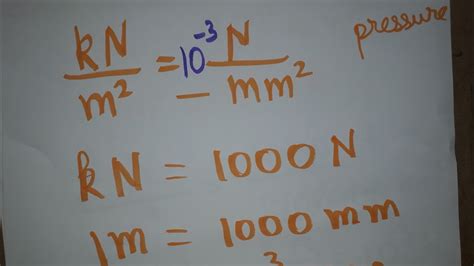 kN/m² = 10⁻³ N/mm²
pressure
kN = 1000 N
1m = 1000 mm
3